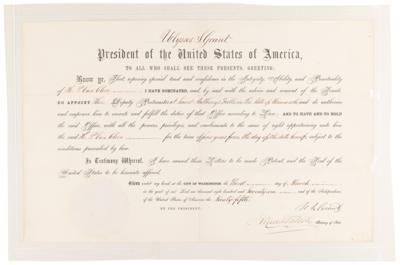 Ulysses S. Grant
President of the United States of America,
TO ALL WHO SHALL SEE THESE PRESENTS, GREETING:
Know ye, That reposing special trust and confidence in the Integrity, Ability, and Punctuality
of I HAVE NOMINATED, and, by and with the advice and consent of the Senate
DO APPOINT Deputy Postmaster at and do authorize
and empower him to execute and fulfil the duties of that Office according to Law; AND TO HAVE AND TO HOLD
the said Office, with all the powers, privileges, and emoluments to the same of right appertaining unto him
the said for the term of four years from the day of the date hereof, subject to the
conditions prescribed by law.
In Testimony Whereof, I have caused these Letters to be made Patent, and the Seal of the
United States to be hereunto affixed.
Given under my hand at the CITY OF WASHINGTON the third day of March
in the year of our Lord one thousand eight hundred and and of the Independence
of the United States of America the ninety fifth.
BY THE PRESIDENT.
Secretary of State.